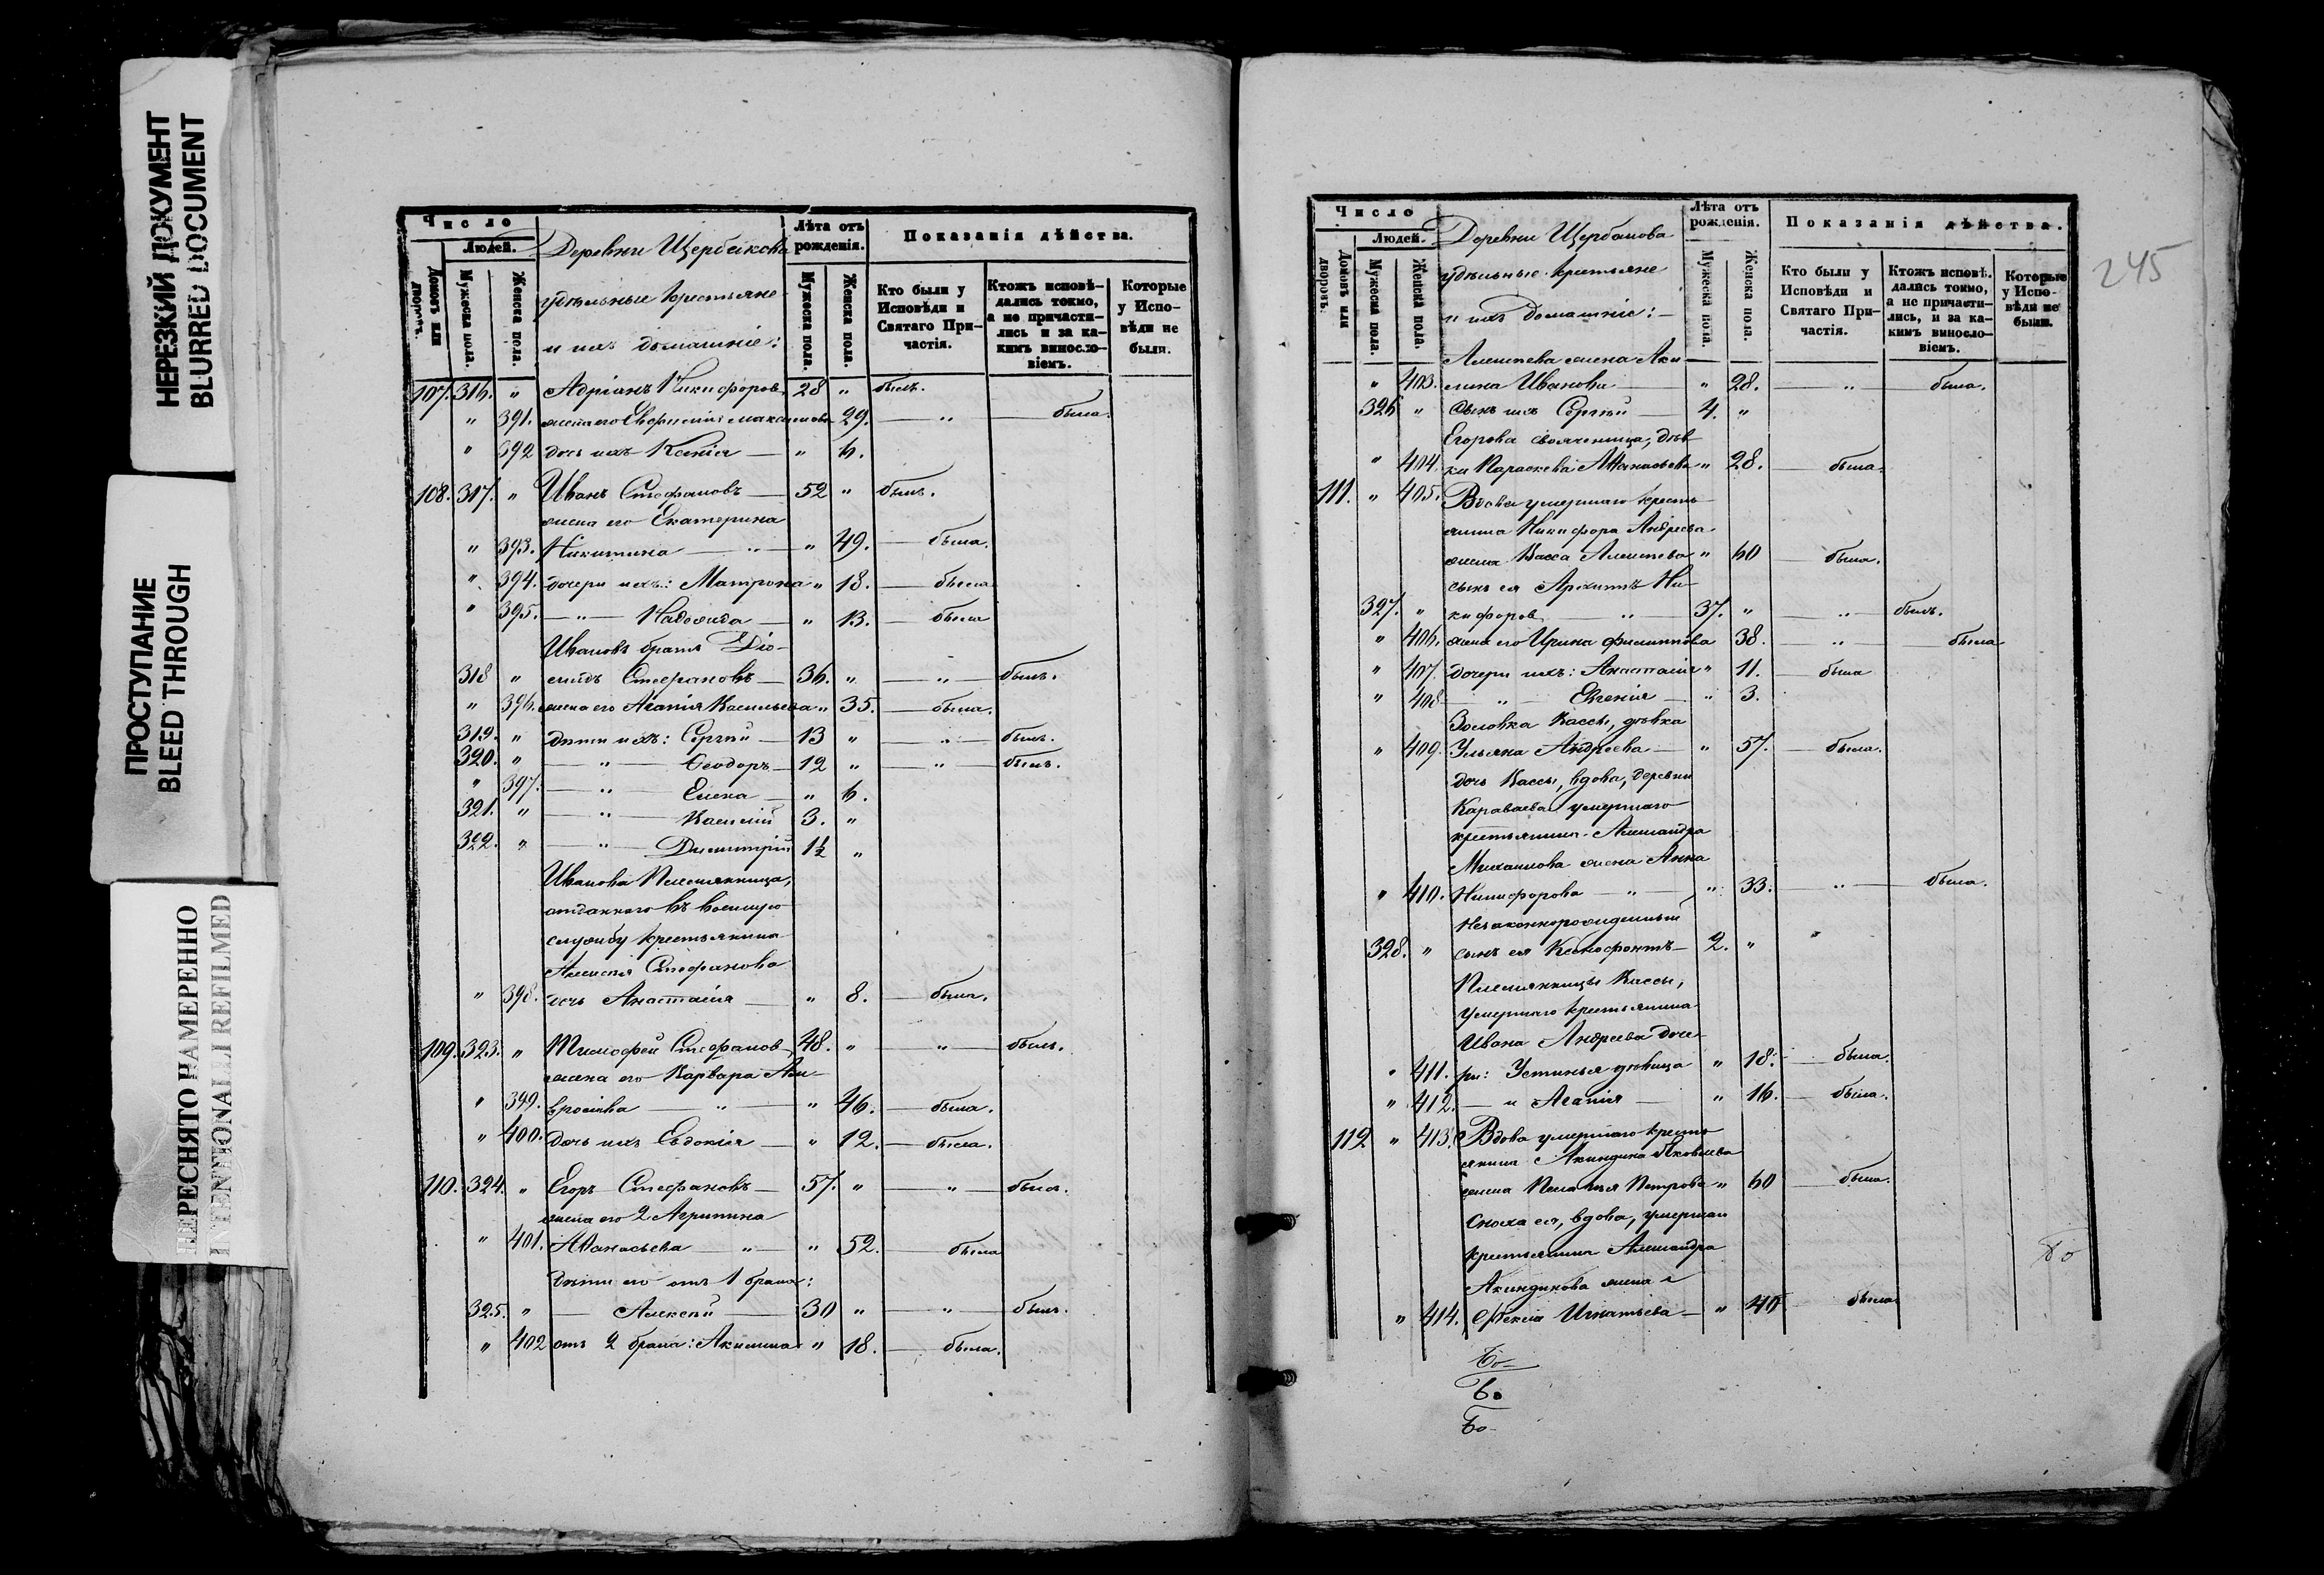 НЕРЕЗКИЙ ДОКУМЕНТ
BLURRED DOCUMENT
ПРОСТУПАНИЕ
BLEED THROUGH
ПЕРЕСНЯТО НАМЕРЕННО
INTENTIONALLY REFILMED
Число
Людей.
Домовъ или дворовъ.
Мужеска пола.
Женска пола.
Деревни
удѣльные крестьяне
и ихъ домашніе:
Лѣта отъ рожденія.
Мужеска пола.
Женска пола.
Показанія дѣйства.
Кто были у Исповѣди и Святаго Причастія.
Ктожъ исповѣдались токмо, а не причастились и за какимъ винословіемъ.
Которые у Исповѣди не были.
107. 316. " Адріанъ Никифоров 28 " былъ.
" 391. жена его Евфимія Максимова 29. — " — была.
" 392 дочь ихъ Ксенія — " 6.
108. 317. " Иванъ Стефановъ — 52 " былъ.
жена его Екатерина
" 393. Никитина — " — " 49. — была.
" 394. дочери ихъ: Матрона " 18. — была
" 395. — " — Надежда — " 13. — была
Ивановъ братъ Діо-
318 " мидъ Стефановъ — 36. " — " — былъ.
" 396. жена его Агапія Васильева " 35. — была.
319. " дѣти ихъ: Сергій — 13 " — " — былъ.
320. " — " — Ѳеодоръ — 12 " — " — былъ.
" 397. — " — Елена — " 6.
321. " — " — Василій 3. "
322. " — " — Димитрій 1½ "
Иванова племянница,
отданнаго въ военную
службу крестьянина
Алексѣя Стефанова
" 398. дочь Анастасія — " 8. — была.
109. 323. " Тимофей Стефанов — 48. " — " — былъ.
жена его Варвара Ам-
" 399. вросіева — " — " 46. — была.
" 400. дочь ихъ Евдокія — " 12. — была.
110. 324. " Егоръ Стефановъ — 57. " — " — былъ.
жена его 2 Агрипина
" 401. Аѳанасьева — " — " 52. — была
дѣти его отъ 1 брака:
325. " — Алексѣй — 30 " — " — былъ.
" 402 отъ 2 брака: Акилина " 18. — была.
245
Число
Людей.
Домовъ или дворовъ.
Мужеска пола.
Женска пола.
Деревни
удѣльные крестьяне
и ихъ домашніе: —
Лѣта отъ рожденія.
Мужеска пола.
Женска пола.
Показанія дѣйства.
Кто были у Исповѣди и Святаго Причастія.
Ктожъ исповѣдались токмо, а не причастились, и за какимъ винословіемъ.
Которые у Исповѣди не были.
Алексѣева жена Аки-
" 403. лина Иванова — " 28. — " — была.
326 " сынъ ихъ Сергѣй — 4. "
Егорова свояченица, дѣв-
" 404. ка Параскева Аѳанасьева " 28. — была.
111. " 405. Вдова умершаго кресть-
янина Никифора Андреева
жена Васса Алексѣева " 60 — была.
сынъ ея Архипъ Ни-
327. " кифоров — " — 37. " — " — былъ.
" 406. жена его Ирина Филиппова 38. — " — была
" 407. дочери ихъ: Анастасія " 11. — была
" 408 — " — Евгенія — " 3.
Золовка Вассы, дѣвка
" 409. Ульяна Андреева — " 57. — была.
дочь Вассы, вдова, деревни
Караваева умершаго
крестьянина Александра
Михаилова жена Анна
" 410. Никифорова — " — " 33. — " — была.
незаконнорожденный
328. " сынъ ея Ксенофонтъ — 2. "
Племянницы Вассы,
умершаго крестьянина
Ивана Андреева доче-
" 411. ри: Устинья дѣвица " 18. — была.
" 412. — и Агапія — " 16. — была.
112 " 413. Вдова умершаго кресть-
янина Акиндина Яковлева
жена Пелагія Петрова " 60 — была.
Сноха ея, вдова, умершаго
крестьянина Александра
Акиндинова жена
" 414. Ѳекла Игнатьева — " 40 — была